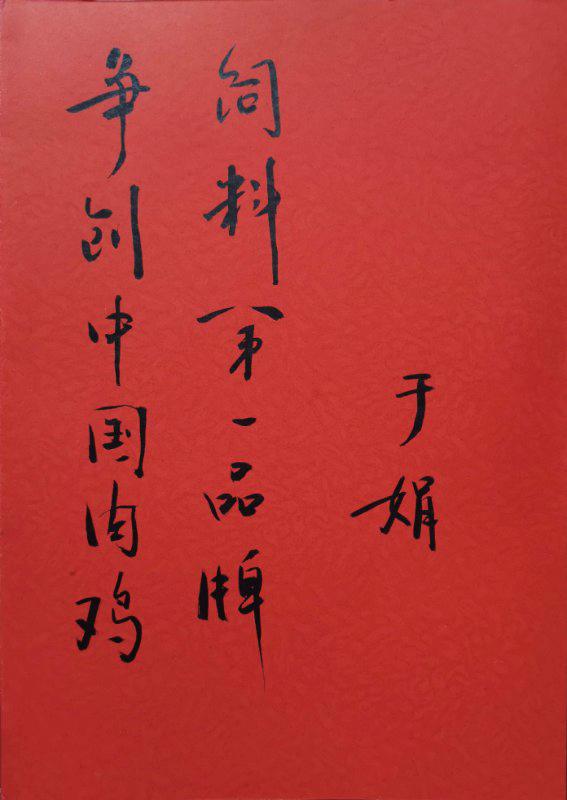 争创中国肉鸡
饲料第一品牌
于娟